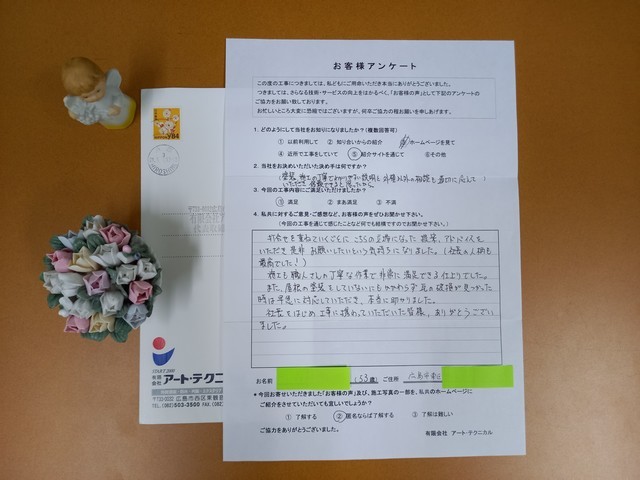 お客様アンケート
この度の工事につきましては、私どもにご用命いただき本当にありがとうございました。
つきましては、さらなる技術・サービスの向上をはかるべく、「お客様の声」として下記のアンケートの
ご協力をお願い致しております。
お忙しいところ大変に恐縮ではございますが、何卒ご協力の程お願いを申しあげます。
1. どのようにして当社をお知りになりましたか?(複数回答可)
① 以前利用して ② 知り合いからの紹介 ホームページを見て
④ 近所で工事をしていて ⑤ 紹介サイトを通じて ⑥その他
2. 当社をお決めいただいた決め手は何ですか?
いただき信頼できると思ったから
3. 今回の工事内容にご満足いただけましたか?
① 満足 ② まあ満足 ③ 不満
4. 私共に対するご意見・ご感想など、お客様の声をぜひお聞かせ下さい。
(今回の工事を通じて感じたことなど何でも結構ですのでお聞かせ下さい。)
打合せを重ねていくごとに こちらの立場になった提案、アドバイスを
いただき是非お願いしたいという気持ちになりました。(社長の人柄も
最高でした!)
施工も職人さんの丁寧な作業で非常に満足できる仕上りでした。
また、屋根の塗装をしていないにもかかわらず瓦の破損が見つかった
時は早急に対応していただき、本当に助かりました。
社長をはじめ工事に携わっていただいた皆様、ありがとうござい
ました。
お名前 (53歳) ご住所 広島市東区
*今回お寄せいただきました「お客様の声」及び、施工写真の一部を、私共のホームページに
ご紹介をさせていただいても宜しいでしょうか?
① 了解する ② 匿名ならば了解する ③ 了解は難しい
ご協力をありがとうございました。
有限会社 アート・テクニカル
84
有限会社
START 2000
有限会社 アート・テクニ
広島市西区東観音
TEL (082)503-3500 FAX (082)